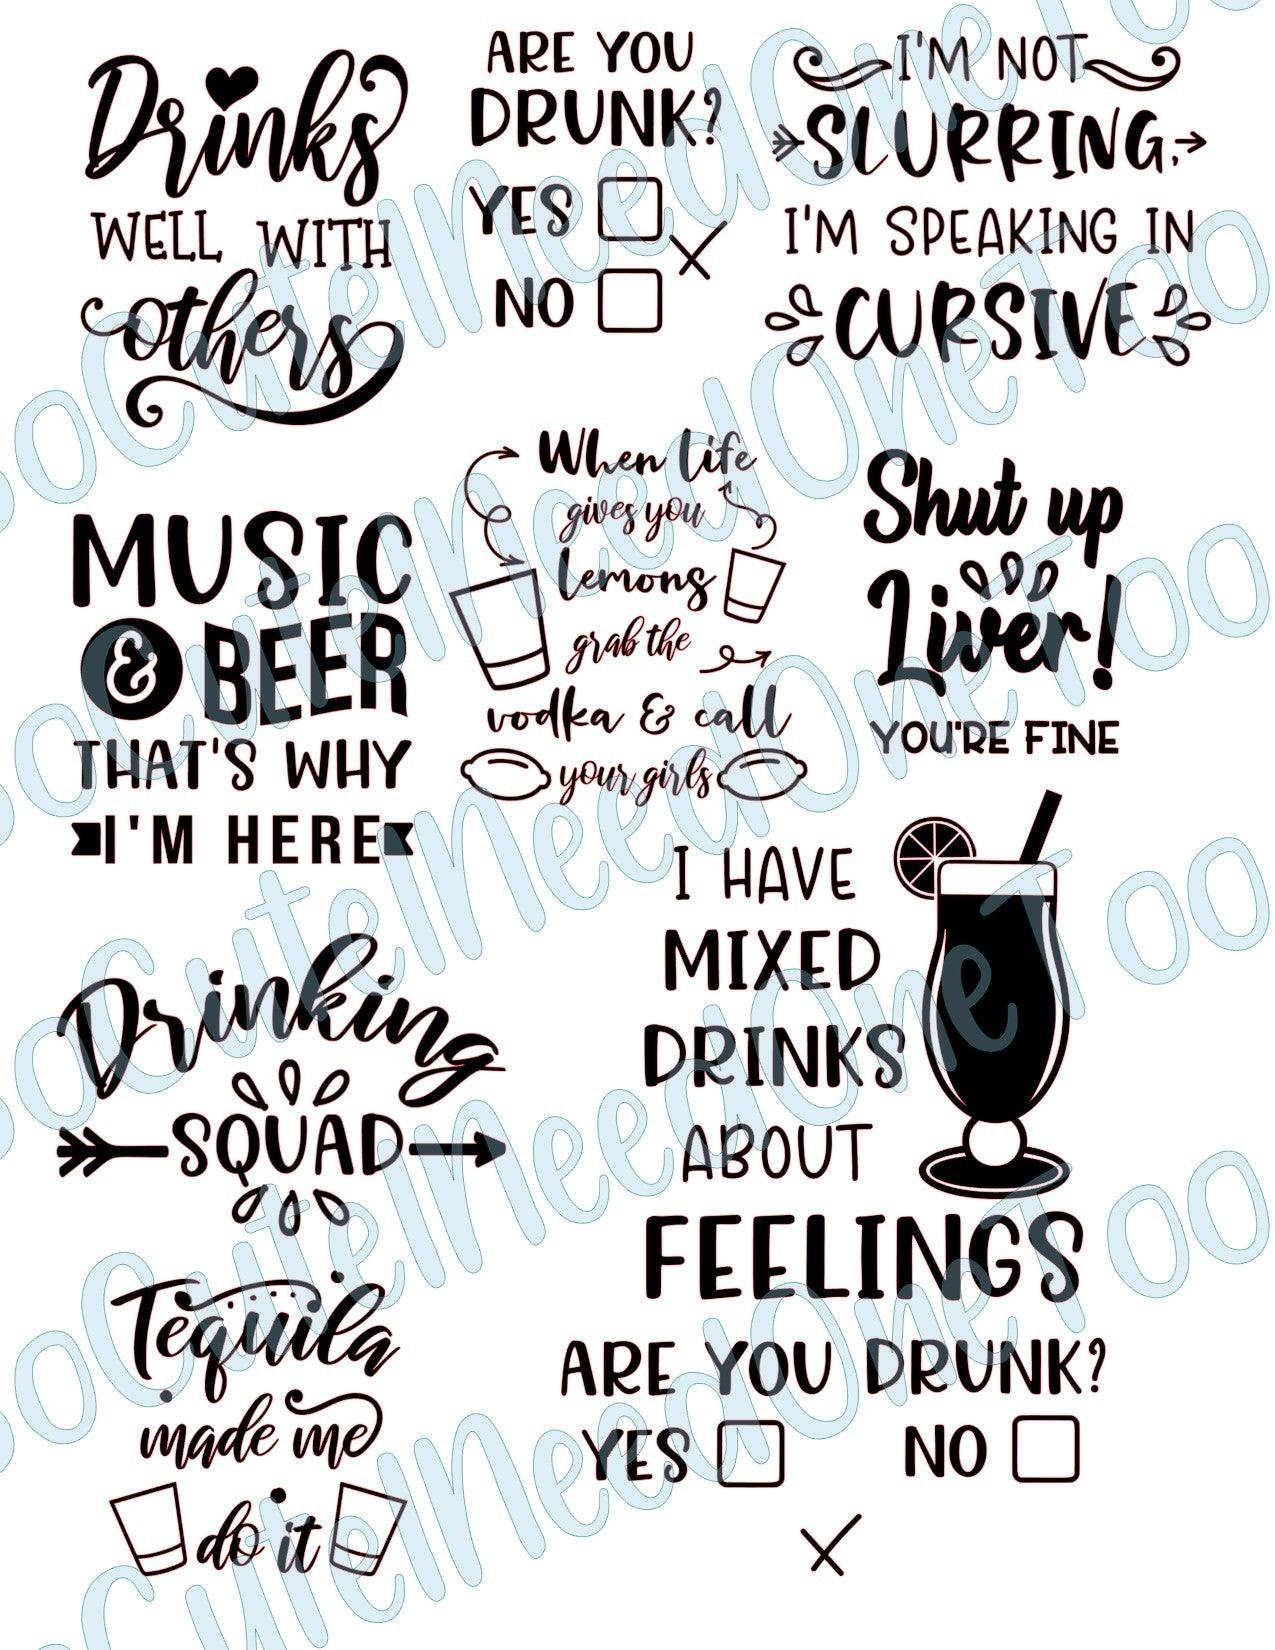 Drinks
WELL WITH
others
ARE YOU
DRUNK?
YES
NO
I'M NOT
SLURRING,
I'M SPEAKING IN
CURSIVE
MUSIC
& BEER
THAT'S WHY
I'M HERE
When life
gives you
lemons
grab the
vodka & call
your girls
Shut up
Liver!
YOU'RE FINE
Drinking
SQUAD
I HAVE
MIXED
DRINKS
ABOUT
FEELINGS
Tequila
made me
do it
ARE YOU DRUNK?
YES NO
SoCuteINeedOneToo